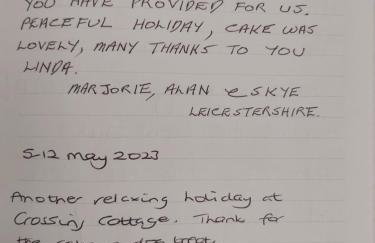 YOU HAVE PROVIDED FOR US.
PEACEFUL HOLIDAY, CAKE WAS
LOVELY, MANY THANKS TO YOU
LINDA.
MARJORIE, ALAN & SKYE
LEICESTERSHIRE.
5-12 May 2023
Another relaxing holiday at
Crossing Cottage. Thank for
the